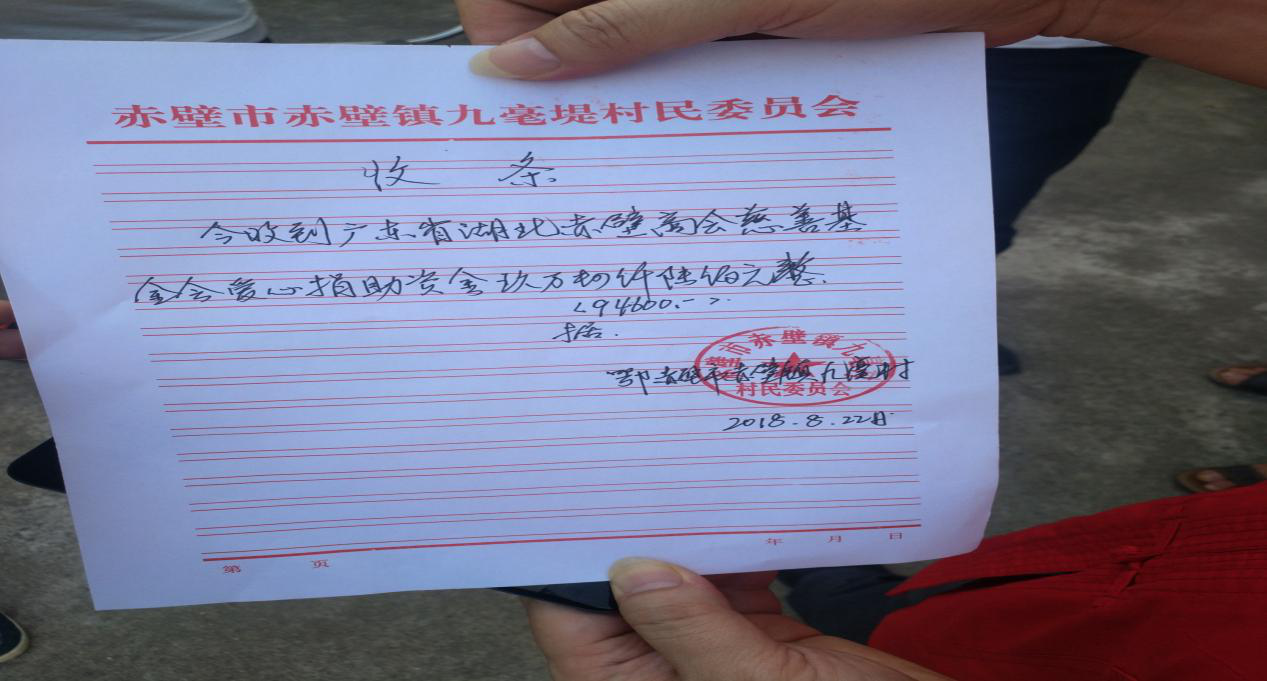 赤壁市赤壁镇九毫堤村民委员会
收 条
今收到广东省湖北赤壁商会慈善基
金会爱心捐助资金玖万肆仟陆佰元整.
<94600.->.
据.
市赤壁镇九
村民委员会
鄂赤壁市赤壁镇九毫村
2018.8.22日
第 页 年 月 日